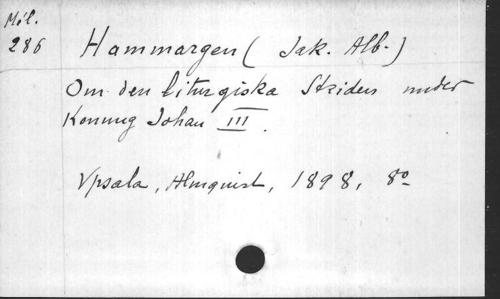 Mél.
286
Hammargen ( Jak. Alb.)
Om den liturgiska Striden under
Konung Johan III.
Upsala, Almquist, 1898, 8º